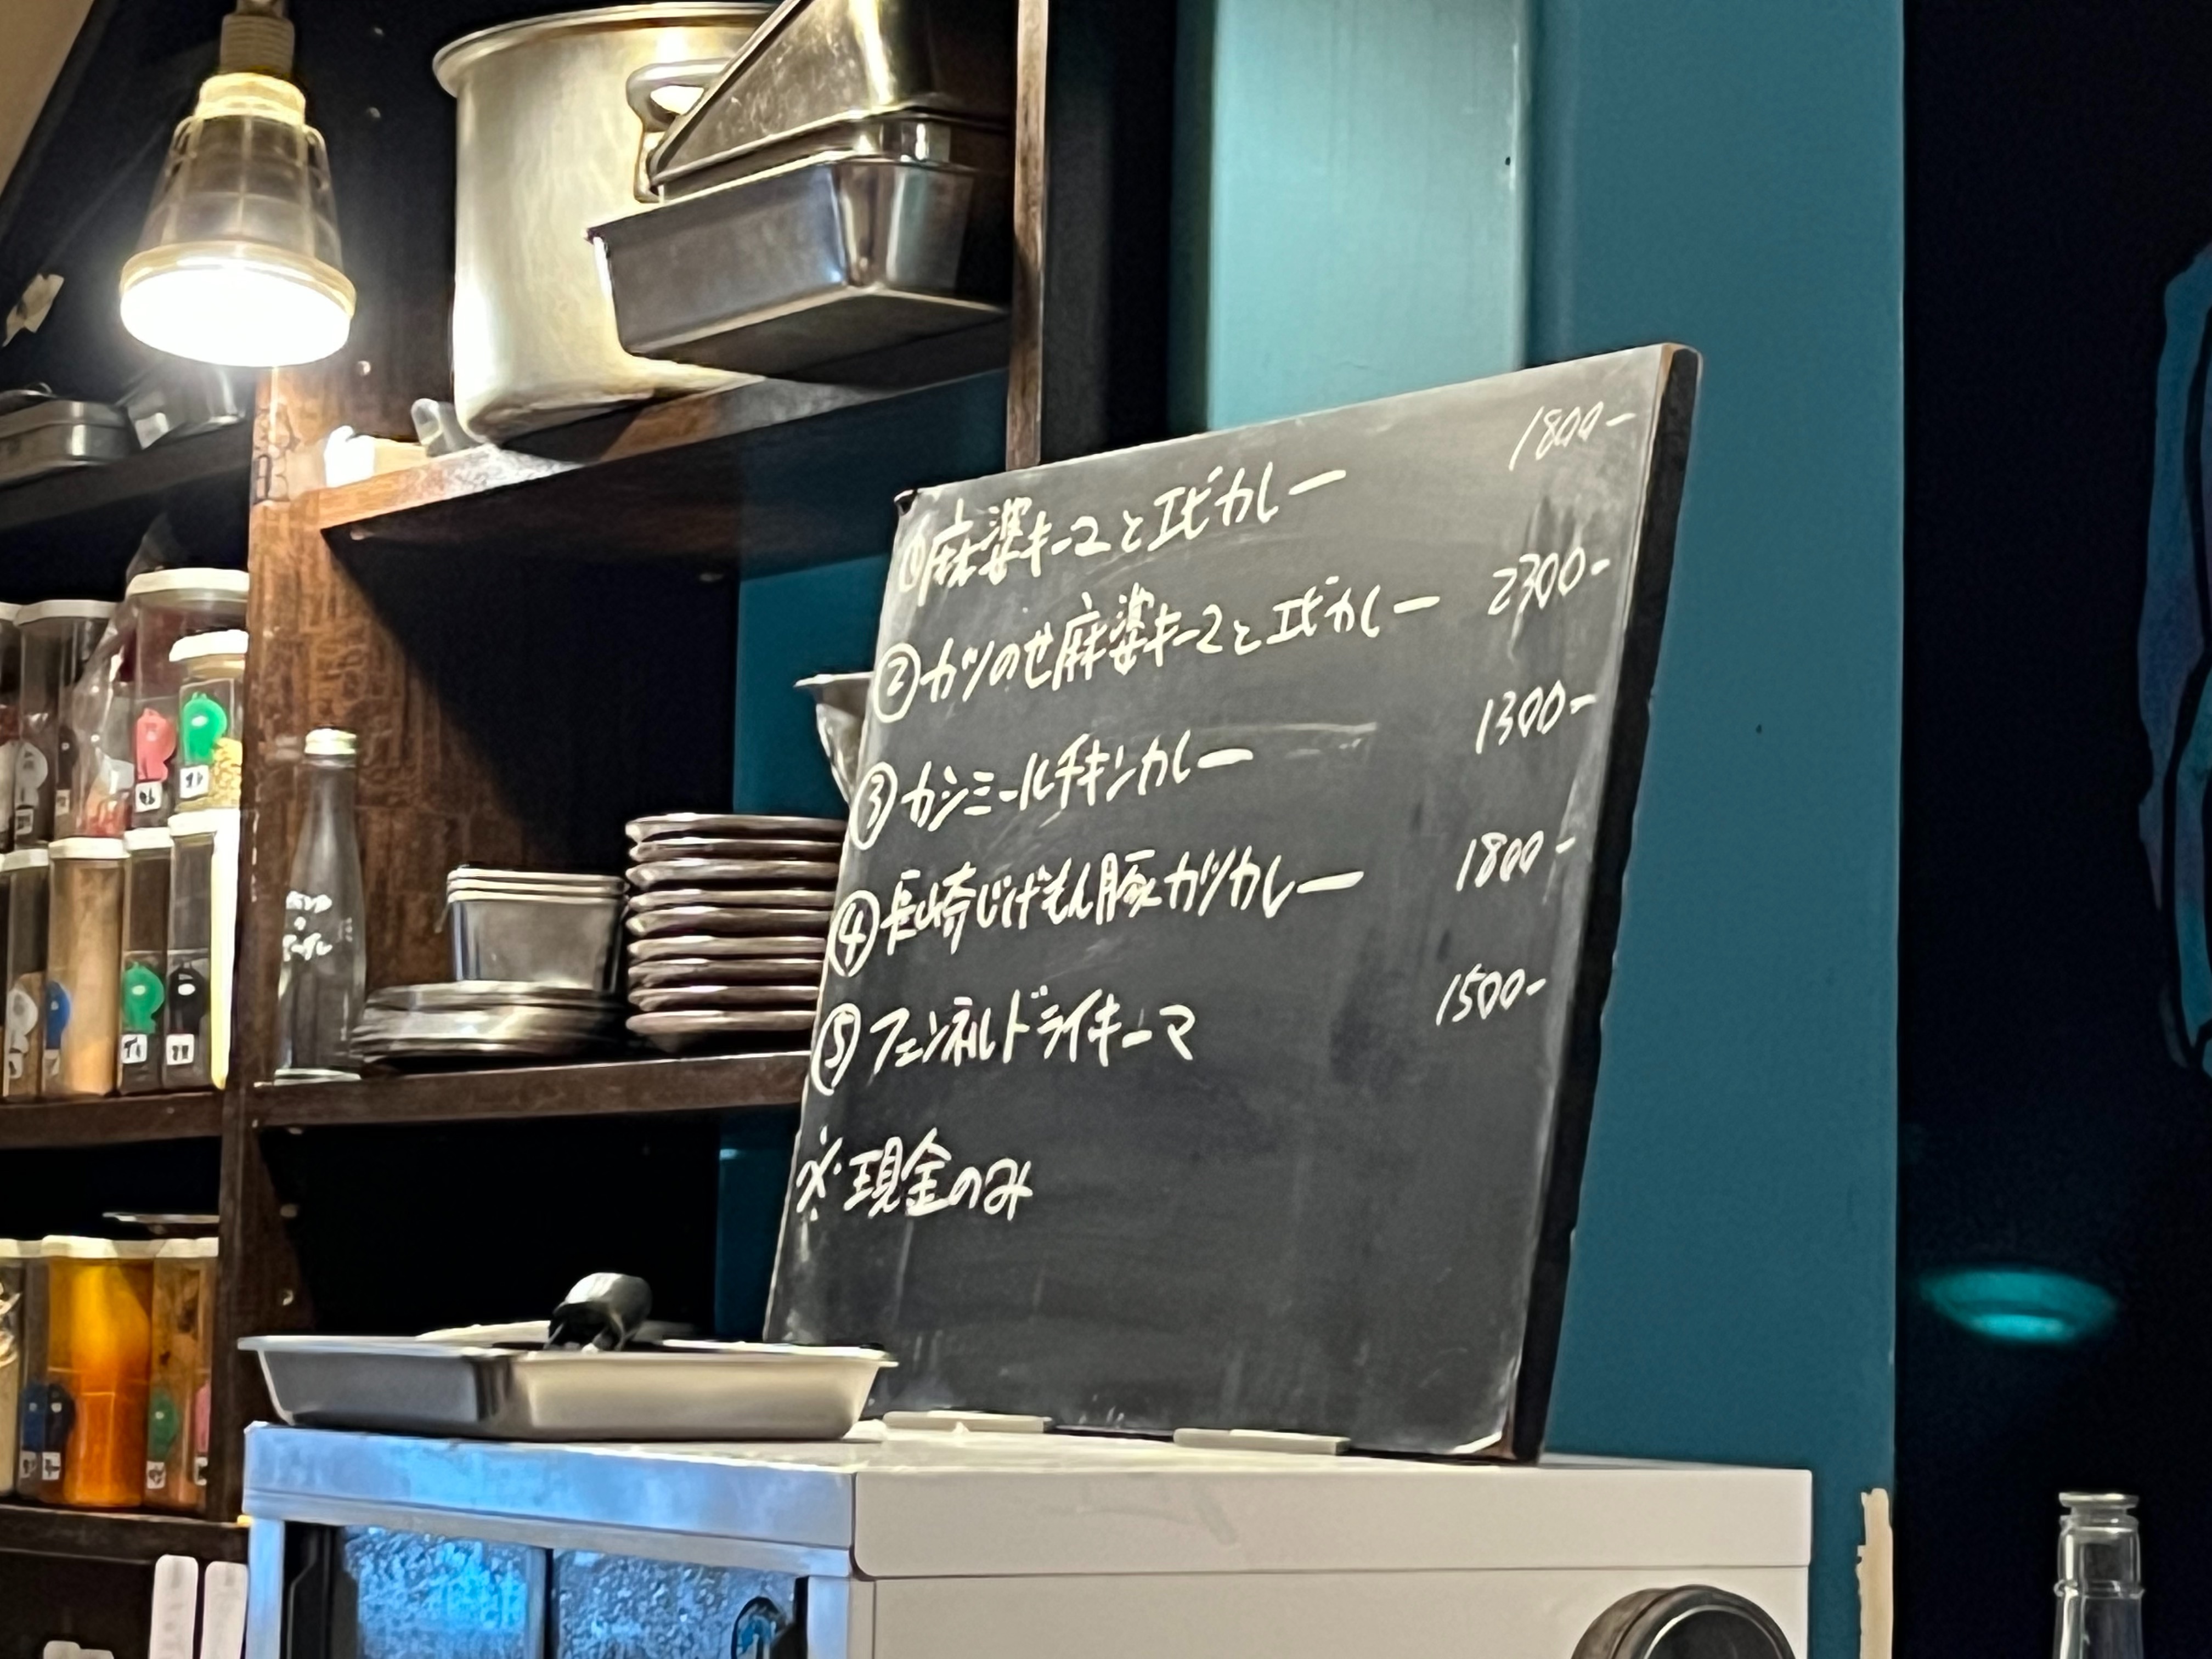 ①麻婆キーマとエビカレー 1800-
②カツのせ麻婆キーマとエビカレー 2300-
③カシミールチキンカレー 1300-
④長崎じげもん豚カツカレー 1800-
⑤フェンネルドライキーマ 1500-
※現金のみ